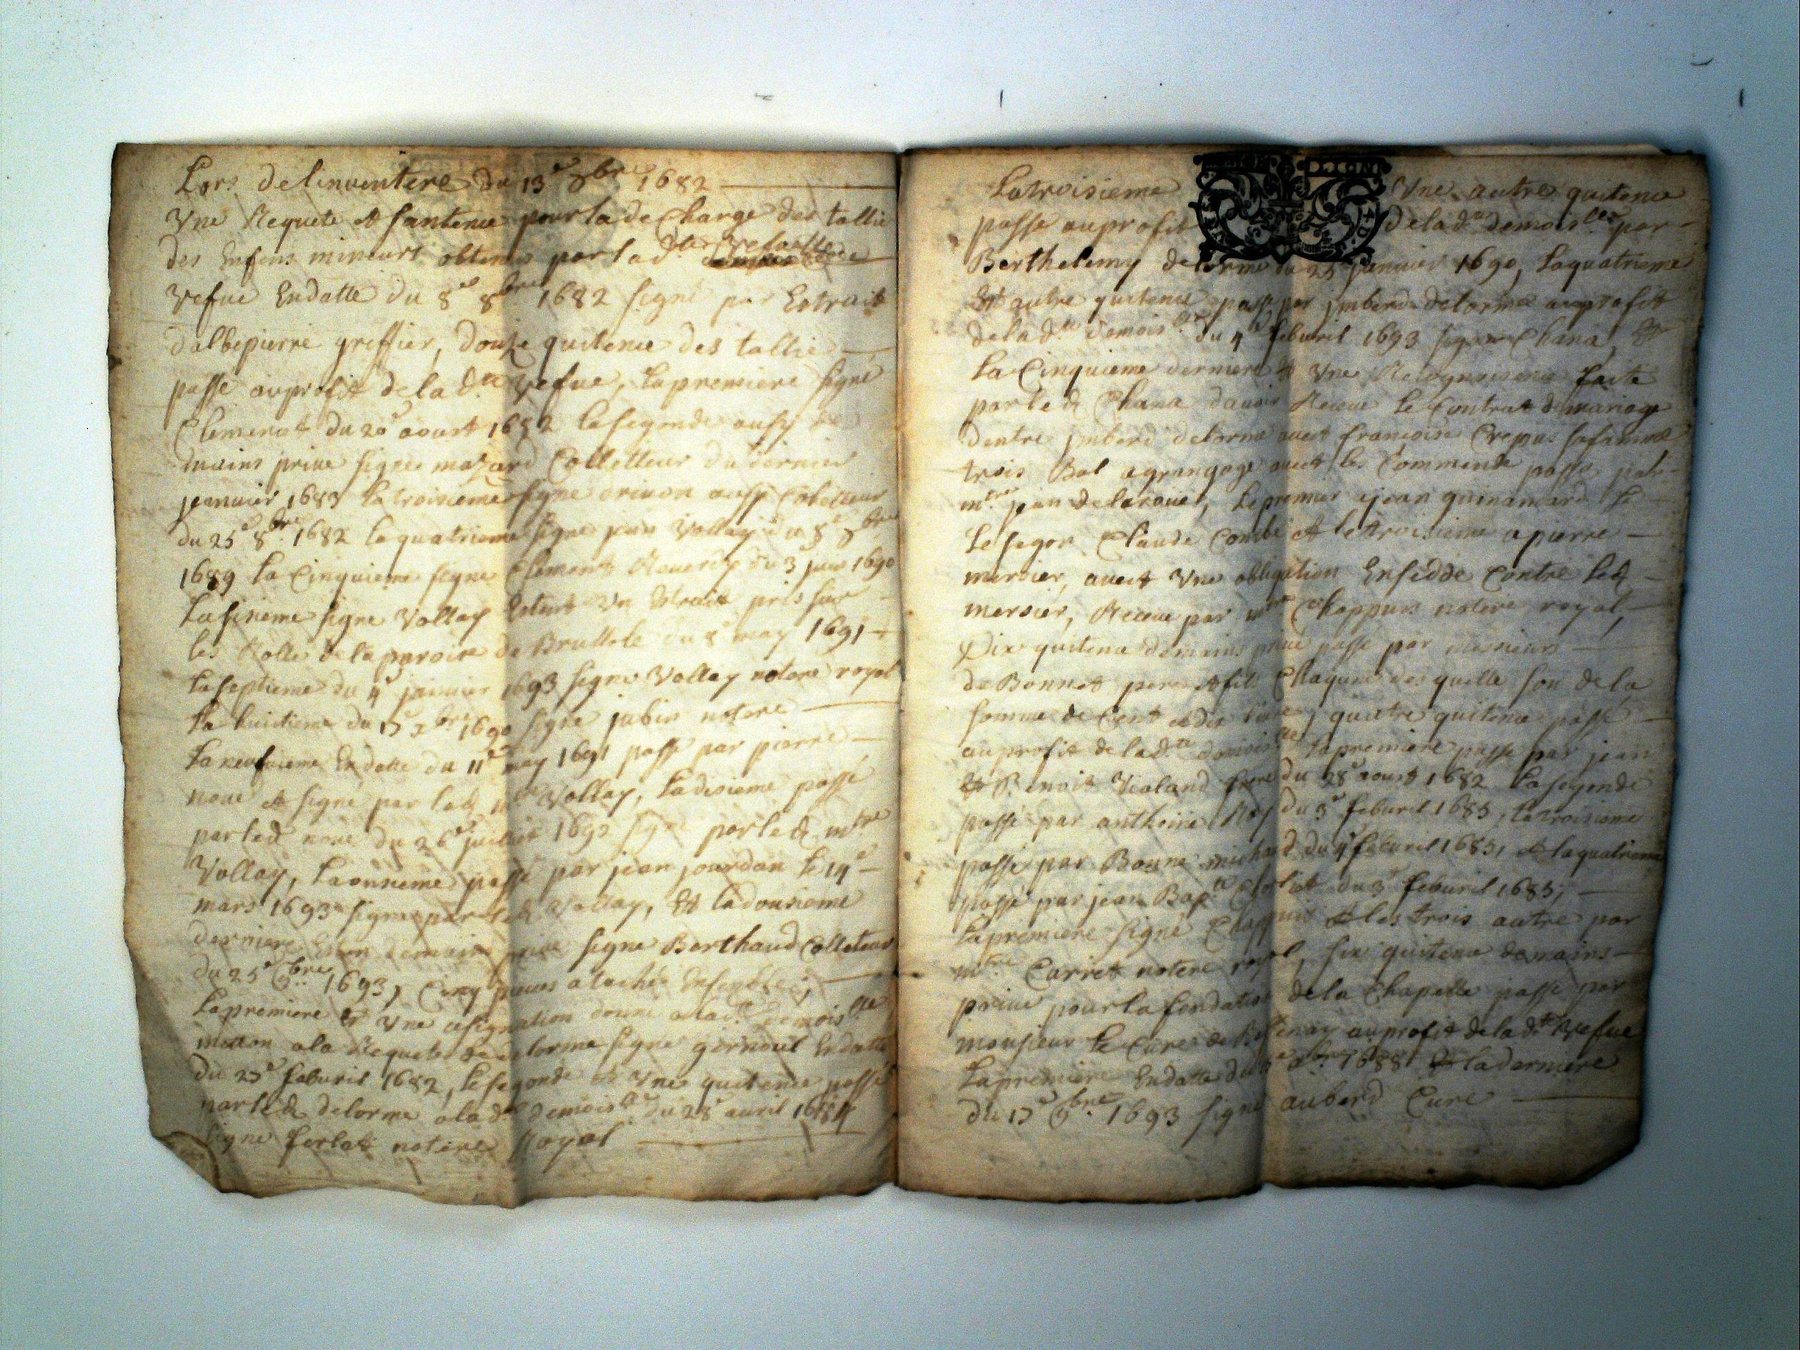 Lors de linventere du 13e 8bre 1682
Vne Requete et santence pour la decharge des tallie
des Enfens mineurs obtenue par lad.
vefue Endatte du 8e 8bre 1682 signé par Extrait
dalbepierre greffier, douze quitence des tallie
passé auproffit de la dte vefue, la premiere signé
Clement du 20e aoust 1682 la segonde aussy de
mains prive signee mazard Collecteur du dernier
jeanvier 1683 la troisieme signe aussy Collecteur
du 25e 8bre 1682 la quatrieme signe jean Vallay du 8e 8bre
1689 la Cinquieme signe Clement du 3 juin 1690
La sixieme signe Vallay Estant un Extrait pris sur
les Rolle de la paroise de Brullole du 8e may 1691
La septieme du 4e janvier 1693 signe Vallay notere royal
La huitieme du 1690 signe jubin notere
La neufuieme Endatte du 11e may 1691 passé par pierre
noue et signe par led mtre Vallay, La disieme passé
par led noue du 26e juillet signe par led mtre
Vallay, La onzieme passé par jean jourdan le 14e
mars 1693 signe par led Vallay, Et la dousieme
derniere demains prive signe Berthaud Colleteur
du 25e 9bre 1693, Cinq pieces atachée Ensemble,
La premiere Et Vne asignation donne a lad. demoislle
motton a la Requete delorme signe Endatte
du 27e feburil 1682, la segonde Et Vne quitence passé
par led delorme a la dte demoislle du 28e avril 1684
signe ferlat notere Royal
La troisieme Vne autre quitence
passé auproffit de lad. demoislle par
Berthelemy delorme du 25 janvier 1690, La quatrieme
Et autre quitence passé par jmberd delorme auproffit
de la dte demoislle du 4e feburil 1693 signe Chana, Et
La Cinquieme derniere Et Vne Recognoisence faite
par led Chana davoir Receue le Contrat de mariage
dentre jmberd delorme avect francoise Crepus sa famme
trois Bal agrangage avect les Commende passé par
mtre jean delaroue, Le premier a jean guinamard Le
Le segon Claude Combe et le troisieme a pierre
mersier, avect Vne obligation Ensedde Contre led
mersier, Receue par mtre Chappuis notere royal,
Dix quitence demains prive passé par mesieurs
de Bonnet pere et fils Chaqune desquelle son de la
somme de Cent et dix livres, quatre quitence passé
auproffit de la dte demoislle La premiere passé par jean
Et Benoit Vialand frere du 28e aoust 1682 La segonde
passé par anthoine Roy du 3e feburil 1685, la troisieme
passé par Bonne michaud du 4e feburil 1685, et la quatrieme
passé par jean Bapte du 3e feburil 1685,
La premiere signe Chappuis et les trois autre par
mtre Carret notere royal, six quitence demains
prive pour la fondation de la Chapelle passé par
monsieur le Cure de auproffit de la dte vefue
La premiere Endatte du 1688 et la derniere
du 17e 9bre 1693 signe auberd Cure